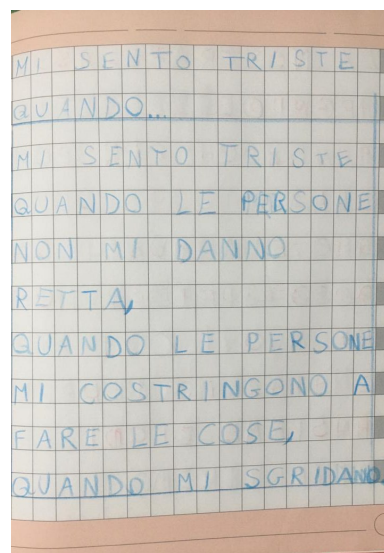 MI SENTO TRISTE
QUANDO...
MI SENTO TRISTE
QUANDO LE PERSONE
NON MI DANNO
RETTA,
QUANDO LE PERSONE
MI COSTRINGONO A
FARE LE COSE,
QUANDO MI SGRIDANO.